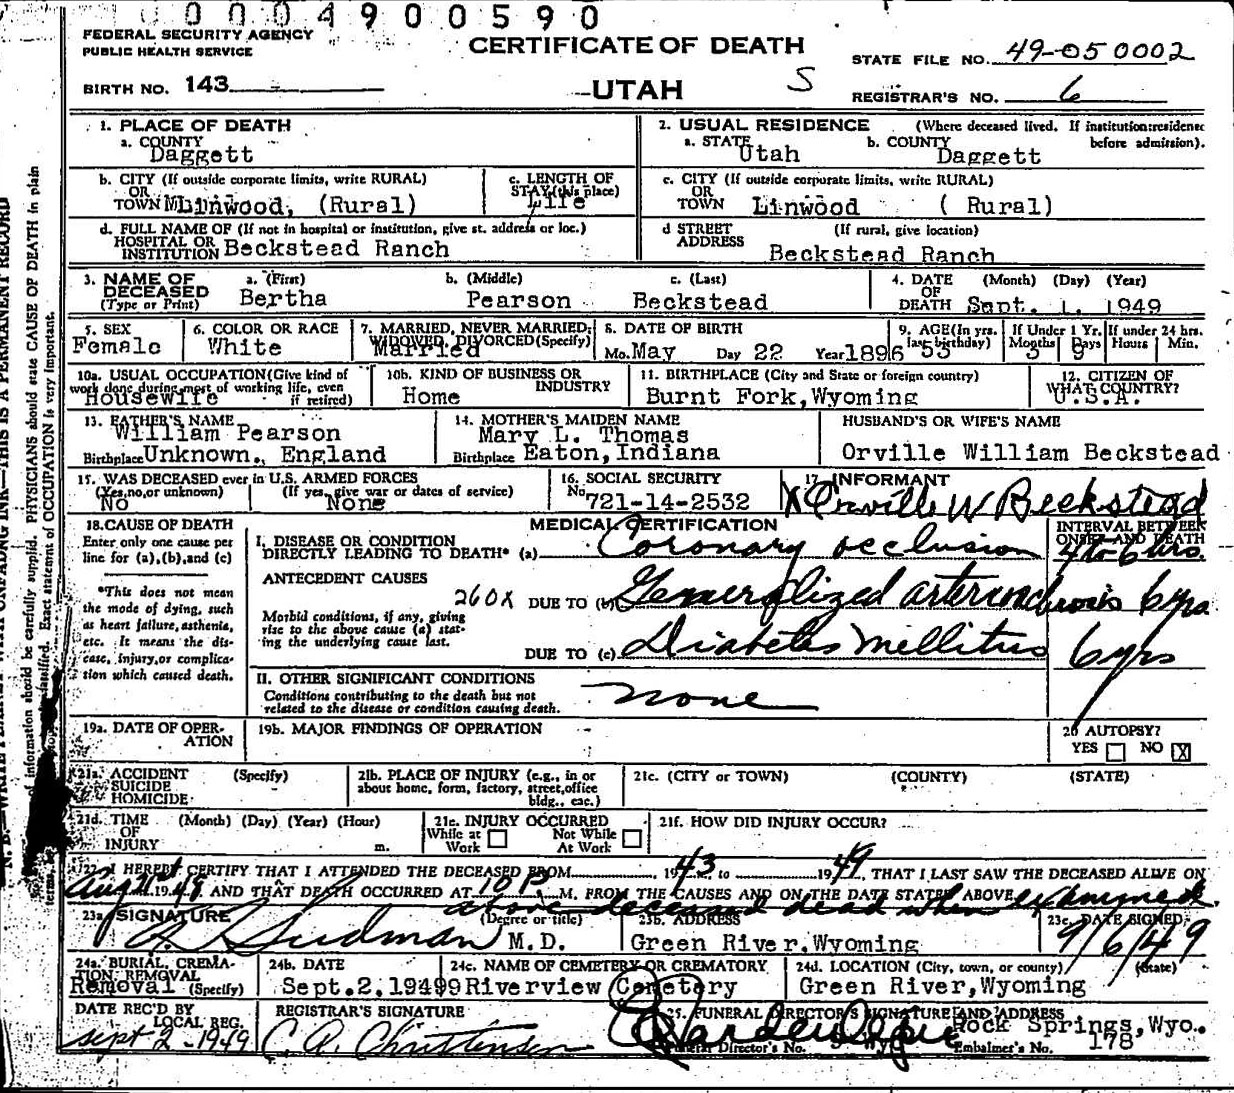 0004900590
FEDERAL SECURITY AGENCY
PUBLIC HEALTH SERVICE
CERTIFICATE OF DEATH
STATE FILE NO. 49-050002
BIRTH NO. 143
UTAH
S
REGISTRAR'S NO. 6
1. PLACE OF DEATH
a. COUNTY
Daggett
2. USUAL RESIDENCE (Where deceased lived. If institution: residence before admission).
a. STATE Utah b. COUNTY Daggett
b. CITY (If outside corporate limits, write RURAL)
OR
TOWN Linwood, (Rural)
c. LENGTH OF
STAY (this place)
Life
c. CITY (If outside corporate limits, write RURAL)
OR
TOWN Linwood ( Rural)
d. FULL NAME OF (If not in hospital or institution, give st. address or loc.)
HOSPITAL OR
INSTITUTION Beckstead Ranch
d STREET (If rural, give location)
ADDRESS
Beckstead Ranch
3. NAME OF DECEASED (Type or Print)
a. (First) b. (Middle) c. (Last)
Bertha Pearson Beckstead
4. DATE OF DEATH (Month) (Day) (Year)
Sept. 1. 1949
5. SEX
Female
6. COLOR OR RACE
White
7. MARRIED, NEVER MARRIED, WIDOWED, DIVORCED (Specify)
Married
8. DATE OF BIRTH
Mo. May Day 22 Year 1896
9. AGE (In yrs. last birthday) 53
If Under 1 Yr. Months 3 Days 9
If under 24 hrs. Hours Min.
10a. USUAL OCCUPATION (Give kind of work done during most of working life, even if retired)
Housewife
10b. KIND OF BUSINESS OR INDUSTRY
Home
11. BIRTHPLACE (City and State or foreign country)
Burnt Fork, Wyoming
12. CITIZEN OF WHAT COUNTRY?
U.S.A.
13. FATHER'S NAME
William Pearson
Birthplace Unknown., England
14. MOTHER'S MAIDEN NAME
Mary L. Thomas
Birthplace Eaton, Indiana
HUSBAND'S OR WIFE'S NAME
Orville William Beckstead
15. WAS DECEASED ever in U.S. ARMED FORCES
(Yes, no, or unknown) (If yes, give war or dates of service)
No None
16. SOCIAL SECURITY
No. 721-14-2532
17. INFORMANT
X Orville W Beckstead
18. CAUSE OF DEATH
Enter only one cause per line for (a), (b), and (c)
*This does not mean the mode of dying, such as heart failure, asthenia, etc. It means the disease, injury, or complication which caused death.
MEDICAL CERTIFICATION
INTERVAL BETWEEN ONSET AND DEATH
I. DISEASE OR CONDITION
DIRECTLY LEADING TO DEATH* (a) Coronary occlusion 4 to 6 hrs.
ANTECEDENT CAUSES
260X DUE TO (b) Generalized arteriosclerosis 6 yrs
Morbid conditions, if any, giving rise to the above cause (a) stating the underlying cause last.
DUE TO (c) Diabetes mellitus 6 yrs
II. OTHER SIGNIFICANT CONDITIONS
Conditions contributing to the death but not related to the disease or condition causing death.
none
19a. DATE OF OPERATION
19b. MAJOR FINDINGS OF OPERATION
20 AUTOPSY?
YES NO X
21a. ACCIDENT (Specify)
SUICIDE
HOMICIDE
21b. PLACE OF INJURY (e.g., in or about home, form, factory, street, office bldg., etc.)
21c. (CITY or TOWN) (COUNTY) (STATE)
21d. TIME OF INJURY (Month) (Day) (Year) (Hour) m.
21e. INJURY OCCURRED
While at Work Not While At Work
21f. HOW DID INJURY OCCUR?
22. I HEREBY CERTIFY THAT I ATTENDED THE DECEASED FROM 1943 to 1949, THAT I LAST SAW THE DECEASED ALIVE ON
August 1949 AND THAT DEATH OCCURRED AT 10 P. M. FROM THE CAUSES AND ON THE DATE STATED ABOVE
above deceased dead when examined
23a. SIGNATURE (Degree or title)
M.D.
23b. ADDRESS
Green River, Wyoming
23c. DATE SIGNED
9/6/49
24a. BURIAL, CREMATION, REMOVAL (Specify)
Removal
24b. DATE
Sept. 2, 1949
24c. NAME OF CEMETERY OR CREMATORY
Riverview Cemetary
24d. LOCATION (City, town, or county) (State)
Green River, Wyoming
DATE REC'D BY LOCAL REG.
Sept 2-1949
REGISTRAR'S SIGNATURE
C. A. Christensen
25. FUNERAL DIRECTOR'S SIGNATURE AND ADDRESS
Rock Springs, Wyo.
Funeral Director's No. Embalmer's No. 178